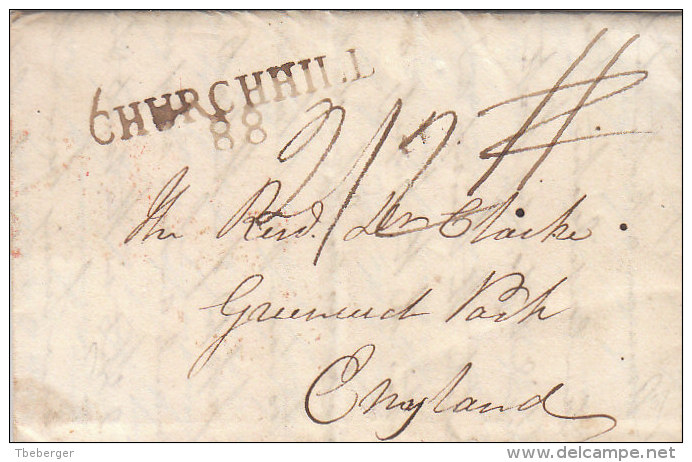 CHURCHHILL
88
2/2
The Revd. Dr Clarke
Greenwich Park
England
Tbeberger
delcampe.net